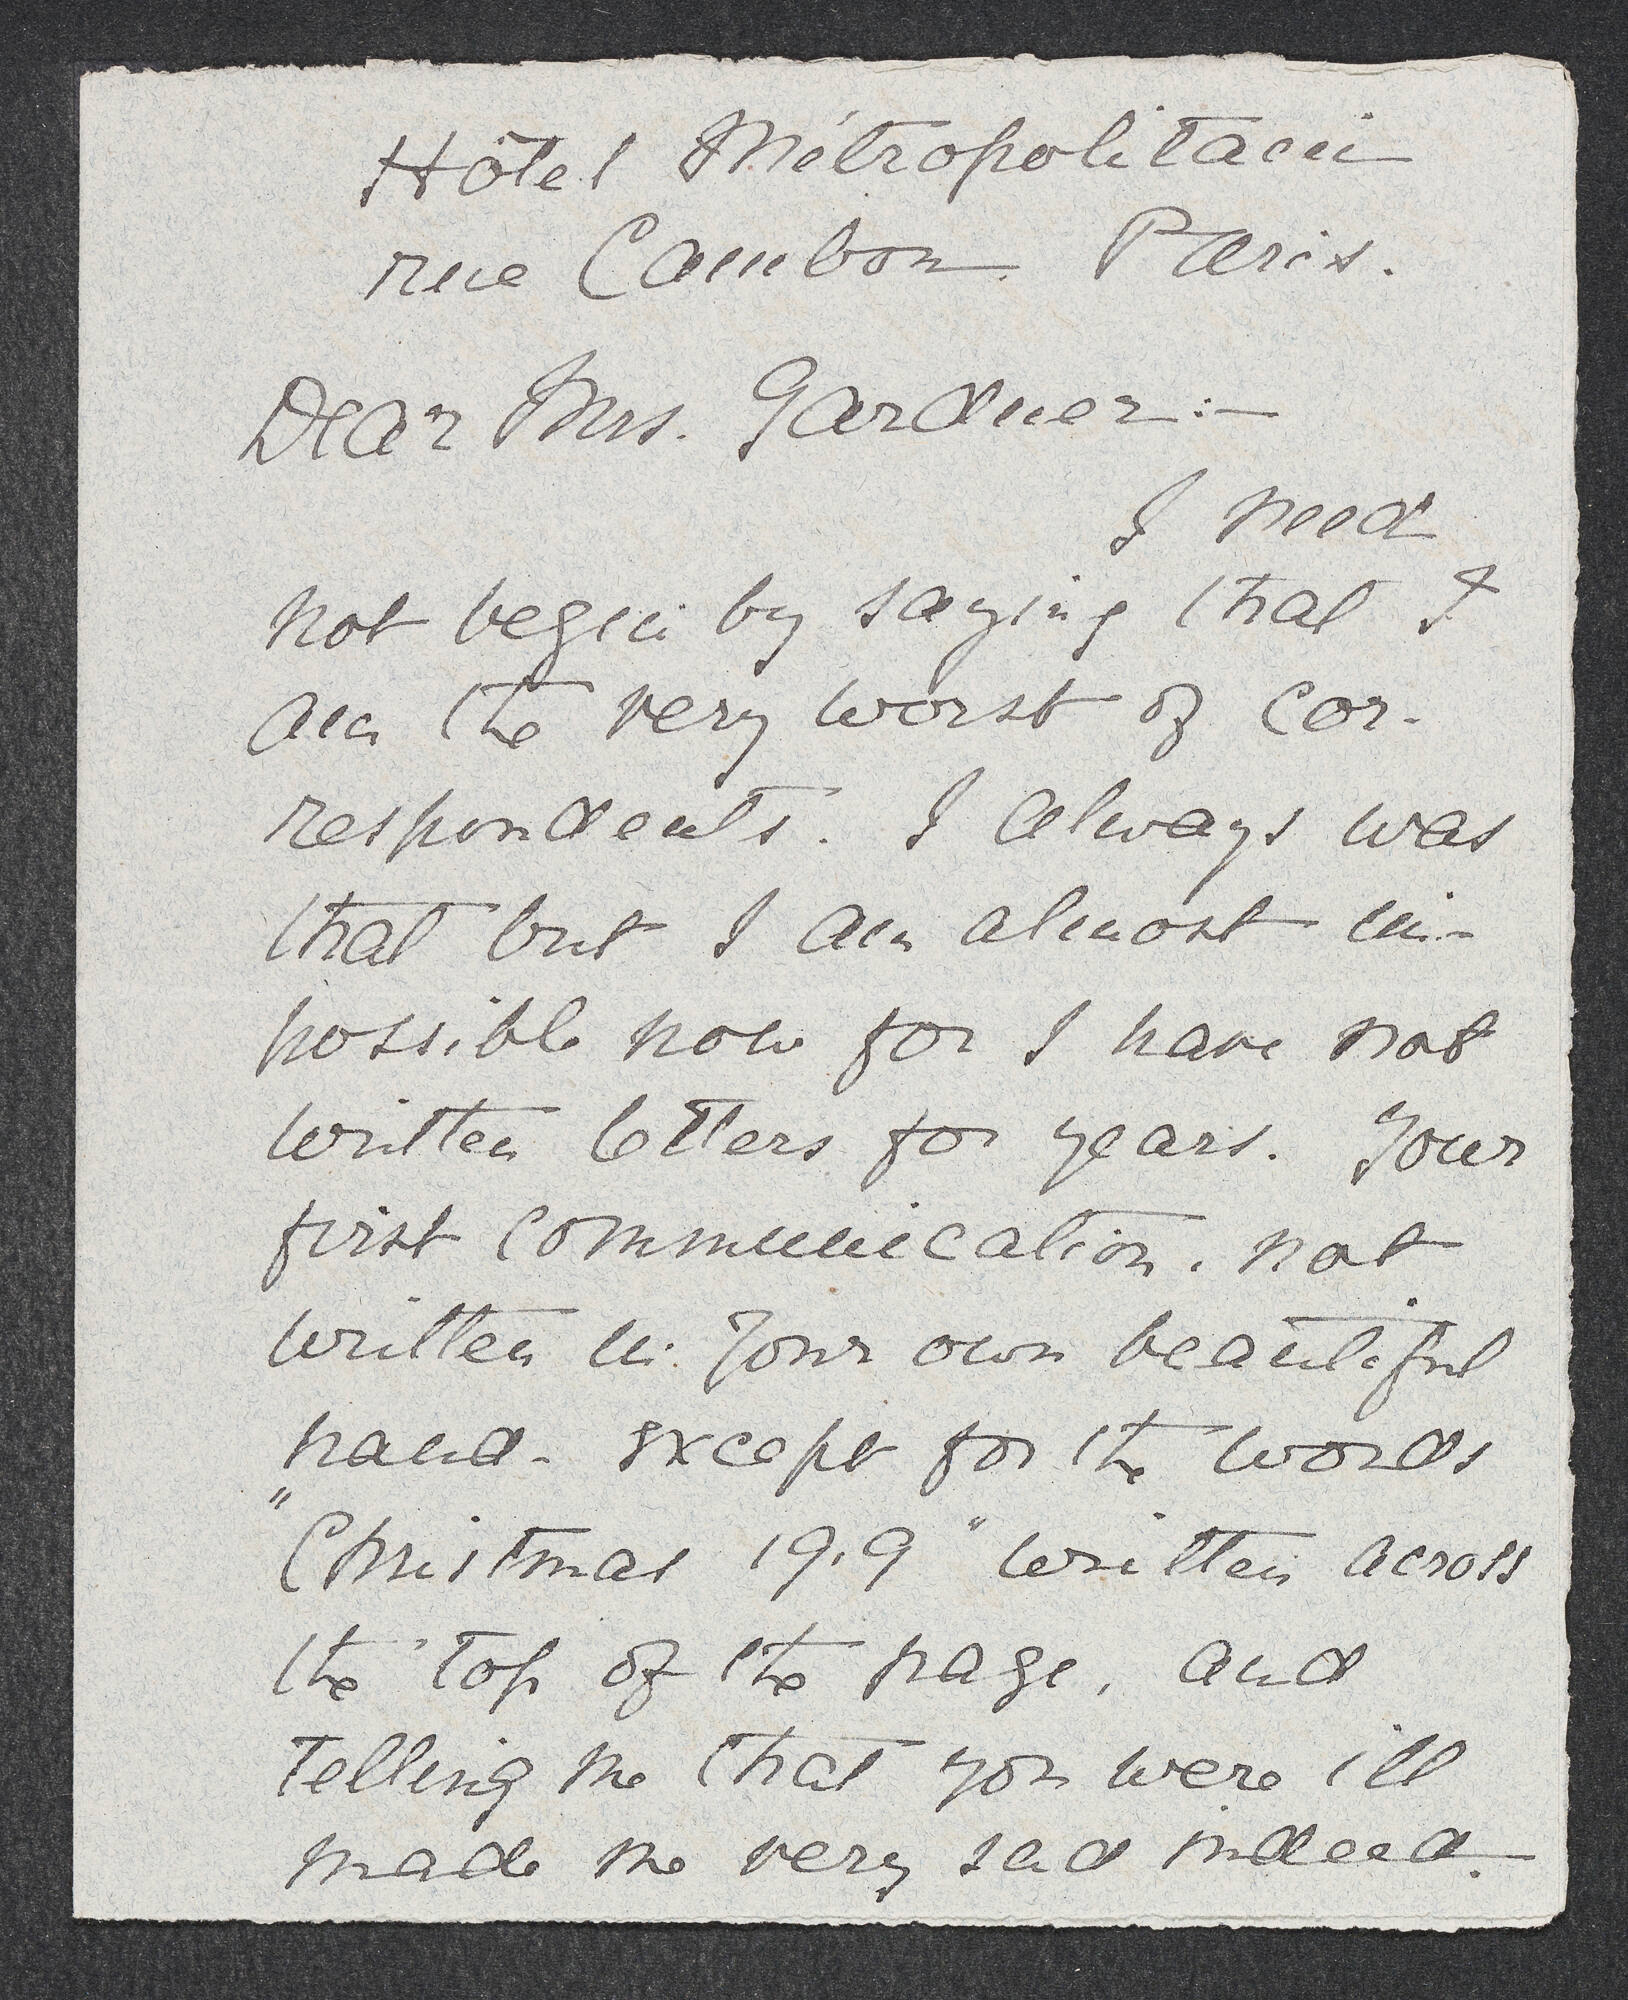 Hôtel Métropolitain
rue Cambon. Paris.
Dear Mrs. Gardner:—
I need
not begin by saying that I
am the very worst of cor-
respondents. I always was
that but I am almost im-
possible now for I have not
written letters for years. Your
first communication, not
written in your own beautiful
hand - except for the words
"Christmas 1919" written across
the top of the page, and
telling me that you were ill
made me very sad indeed.